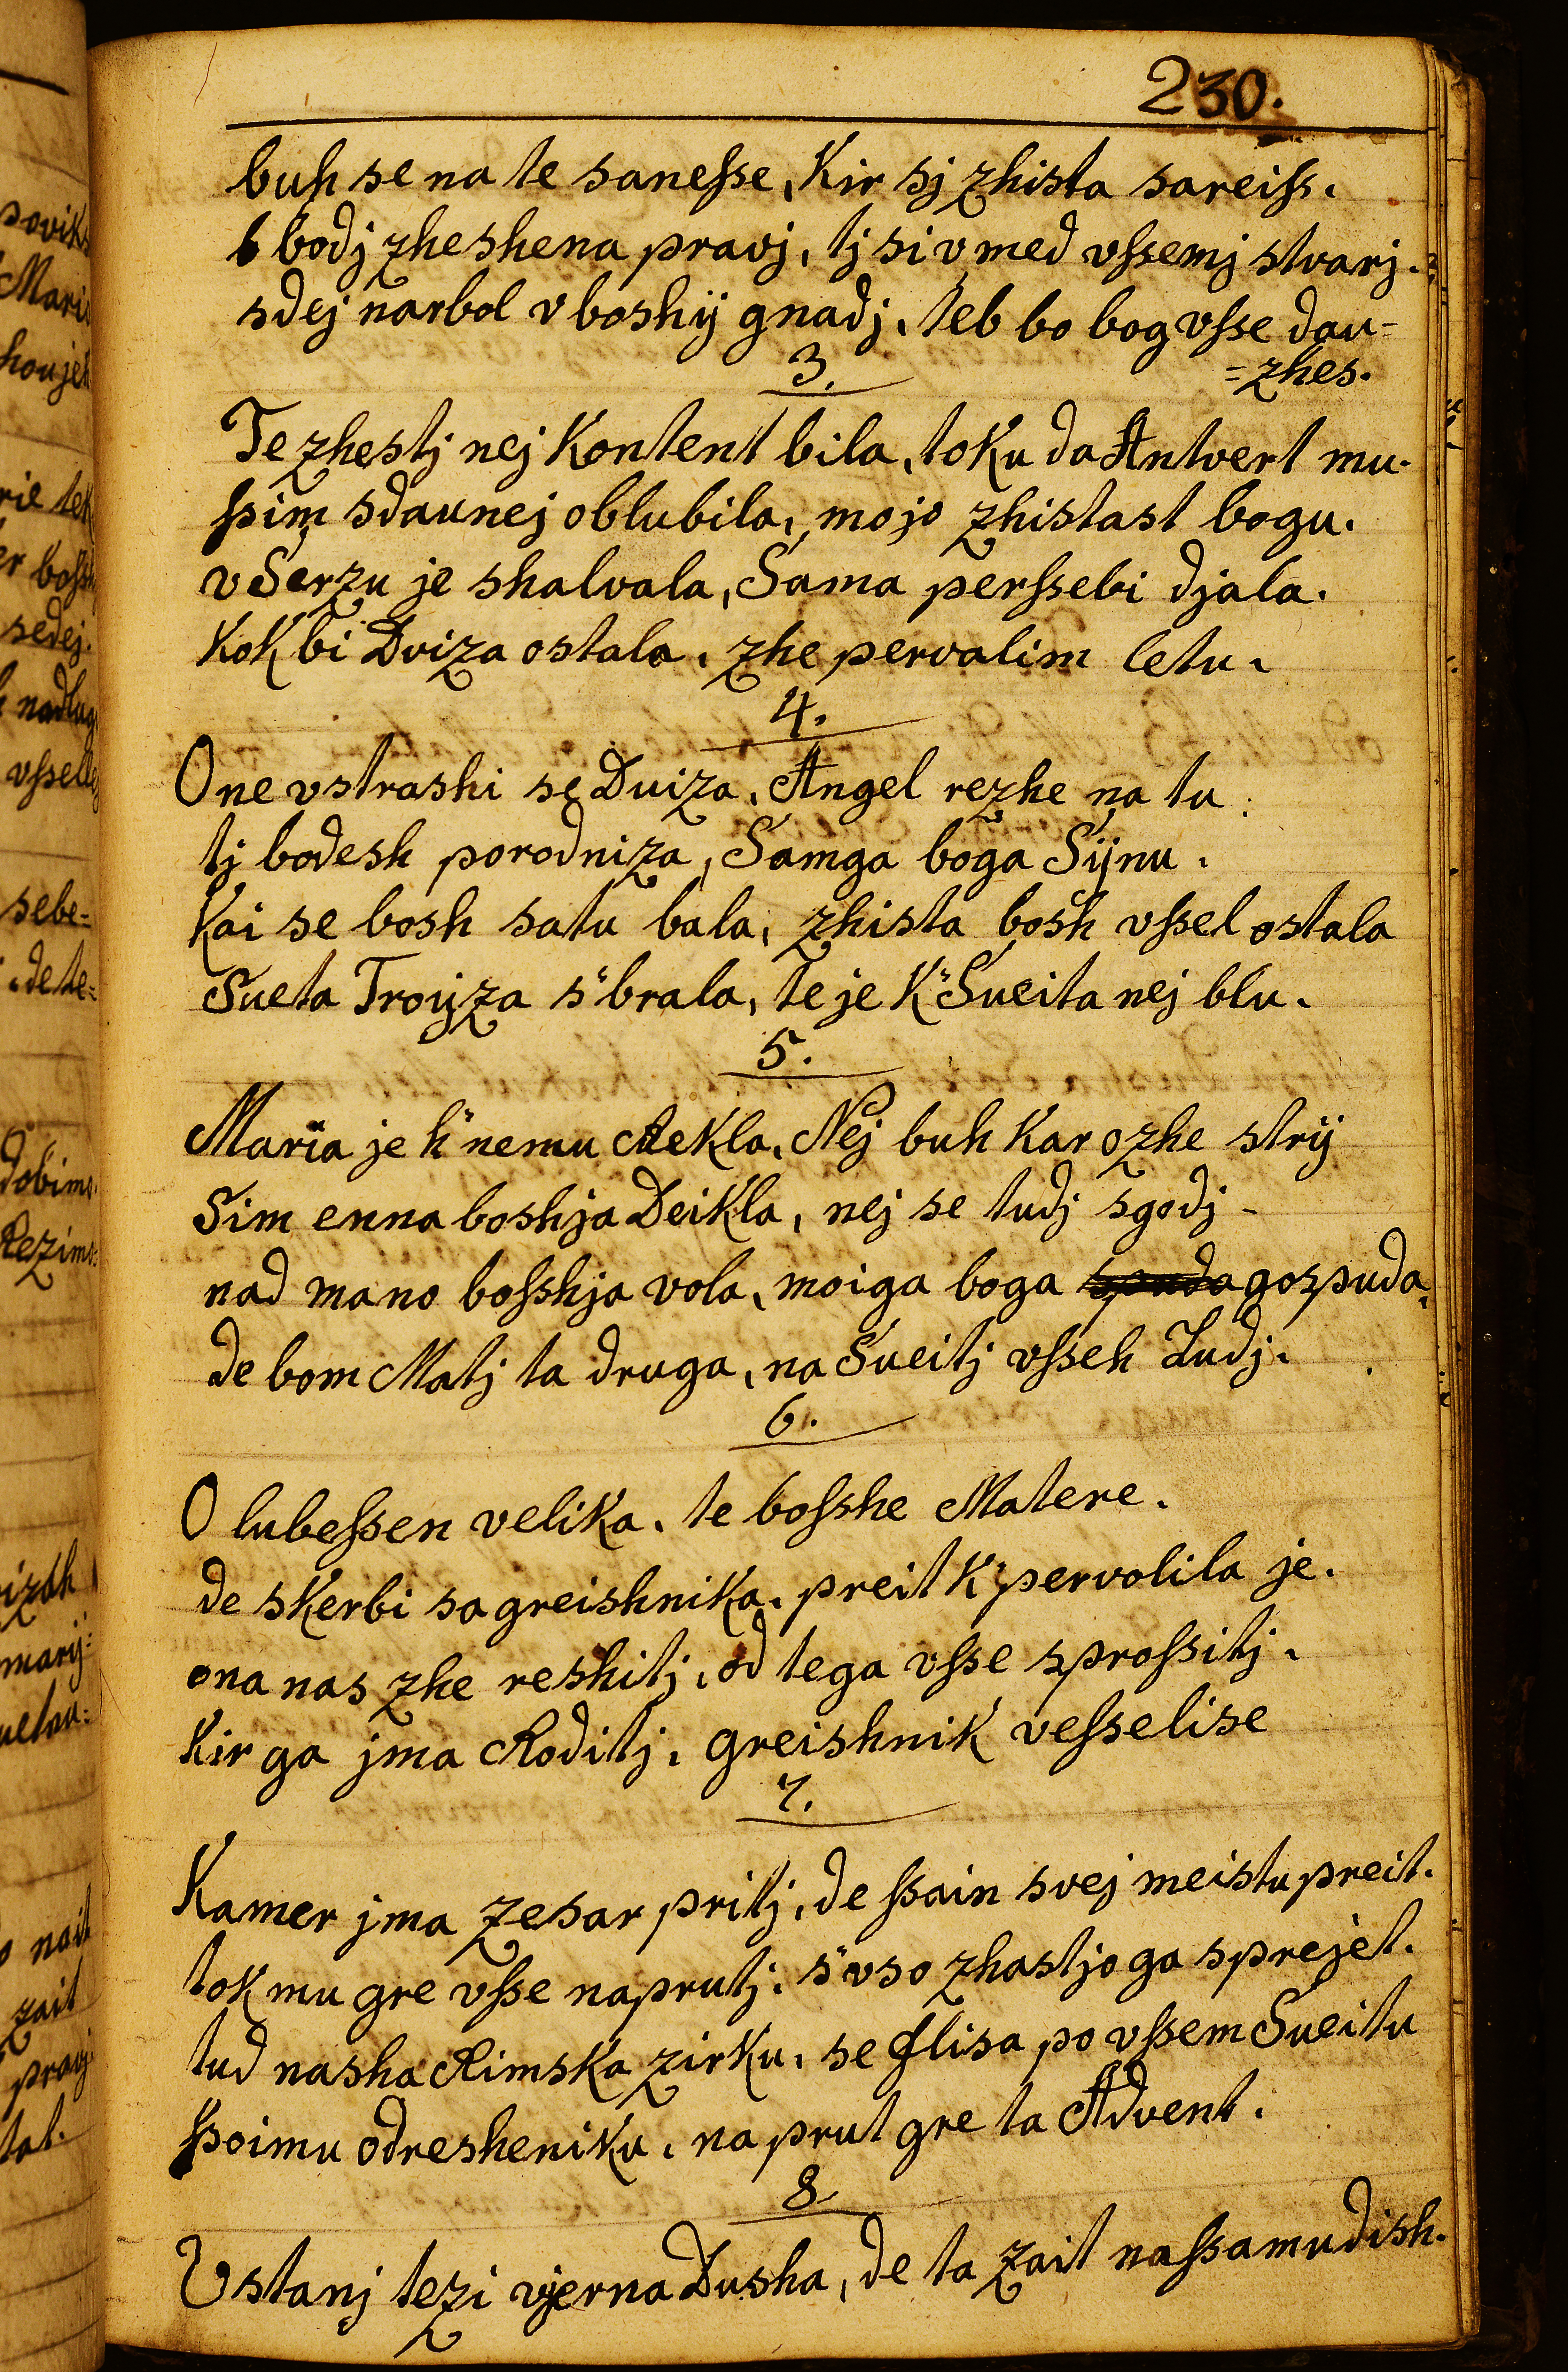 230.
buh se na te sanesse, Kir sj zhista sareiss.
bodj zheshena pravj, tj si v med vssemj stvarj.
sdej narbol v boshij gnadj, teb bo bog vsse dau=
=zhes.
3.
Te zhestj nej Kontent bila, toku da Antvert mu.
ssim sdaunej oblubila, mojo zhistast bogu.
v Serzu je shalvala, Sama perssebi djala.
Kok bi Dviza ostala, zhe pervalim letu.
4.
One vstrashi se Duiza, Angel rezhe na tu
tj bodesh porodniza, Samga boga Sijnu.
Kai se bosh satu bala, zhista bosh vssel ostala
Sueta Troijza s"brala, te je K"Sueita nej blu.
5.
Maria je h"nemu Rekla, Nej buh Kar ozhe strij
Sim enna boshja Deikla, nej se tudj sgodj -
nad mano bosshja vola, moiga boga gospuda,
de bom Matj ta druga, na Sueitj vsseh Ludj.
6.
O lubessen velika, te bosshe Matere.
de skerbi sa greishnika, preit K"pervolila je.
ona nas zhe reshitj, od tega vsse sprossitj.
Kir ga jma Roditj, greishnik vesselise
7.
Kamer jma Zesar pritj, de ssain svej meistu preit.
tok mu gre vsse naprutj, s"vso zhastjo ga sprejet.
tud nasha Rimska zirku, se flisa po vssem Sueitu
ssoimu odresheniku, na prut gre ta Advent.
8.
Vstanj tezi vjerna Dusha, de ta zait nassamudish.